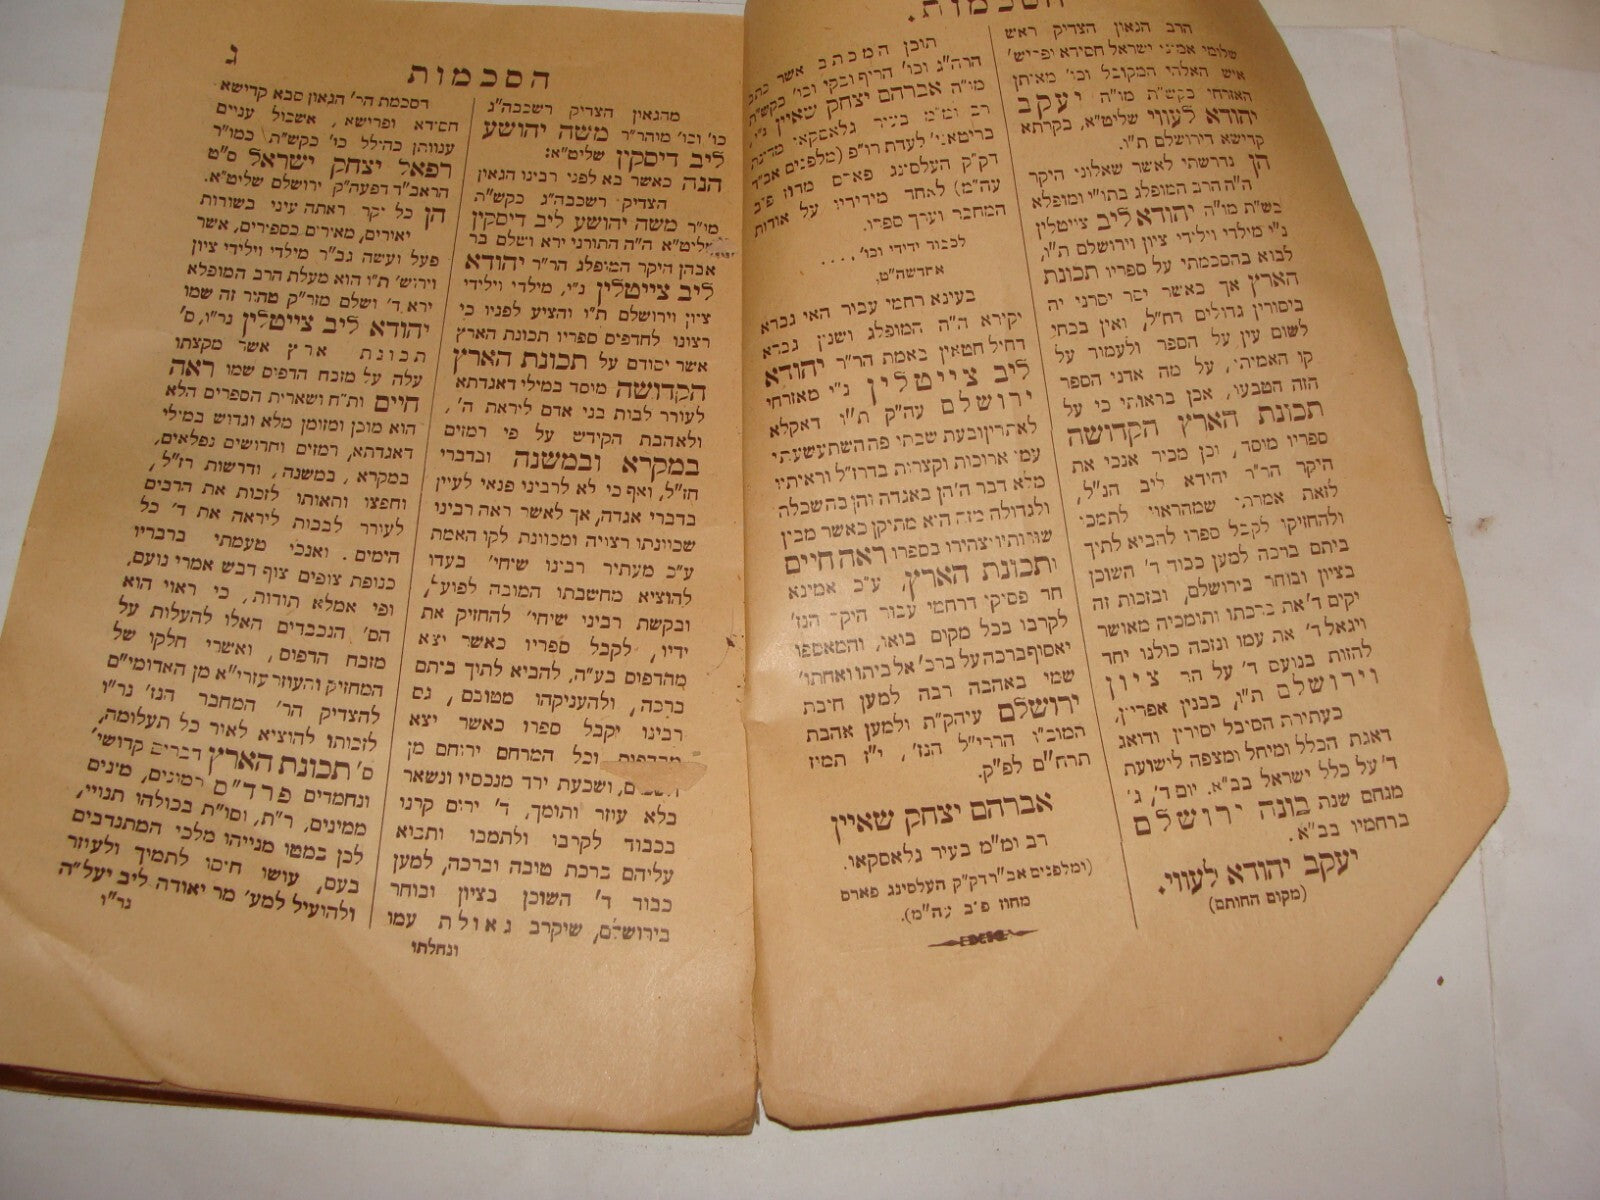 הסכמות.
הרב הגאון הצדיק ראש
שלומי אמיני ישראל חסידא ופריש'
איש האלהי המקובל וכו' מאיתן
האזרחי כקש"ת מו"ה יעקב
יהודא לעווי שליט"א, בקרתא
קדישא דירושלם ת"ו.
הן נדרשתי לאשר שאלוני היקר
ה"ה הרב המופלג בתו"י ומופלא
בש"ת מו"ה יהודא ליב צייטלין
נ"י מילדי וילידי ציון וירושלם ת"ו,
לבוא בהסכמתי על ספריו תכונת
הארץ אך כאשר יסר יסרני יה
ביסורין גדולים רח"ל, ואין בכחי
לשום עין על הספר ולעמוד על
קו האמיתי, על מה אדני הספר
הזה הטבעו, אכן בראותי כי על
תכונת הארץ הקדושה
ספריו מוסד, וכן מכיר אנכי את
היקר הר"ר יהודא ליב הנ"ל,
לזאת אמרתי שמהראוי לתמכו
ולהחזיקו לקבל ספרו להביא לתוך
ביתם ברכה למען כבוד ד' השוכן
בציון ובוחר בירושלם, ובזכות זה
יקים ד' את ברכתו ותומכיה מאושר
ויגאל ד' את עמו ונזכה כולנו יחד
לחזות בנועם ד' על הר ציון
וירושלם ת"ו, בבנין אפריון,
בעתירת הסובל יסורין ודואג
דאגת הכלל ומיחל ומצפה לישועת
ד' על כלל ישראל בב"א. יום ד', ג'
מנחם שנת בונה ירושלם
ברחמיו בב"א.
יעקב יהודא לעווי.
(מקום החותם)
תוכן המכתב אשר כתב
הרה"ג וכו' חריף ובקי וכו' כקש"ת
מו"ה אברהם יצחק שאיין נ"י,
רב ומ"מ בעיר גלאסקאו מדינת
בריטאני' לעדת רו"פ (מלפנים אב"ד
דק"ק העלסינג פארס מחוז פ"ב
עה"מ) לאחד מידידיו על אודות
המחבר וערך ספריו.
לכבוד ידידי וכו', ....
אחדשה"ט,
בעינא רחמי עבור האי גברא
יקירא ה"ה המופלג ושנון גברא
דחיל חטאין באמת הר"ר יהודא
ליב צייטלין נ"י מאזרחי
ירושלם עה"ק ת"ו דאקלא
לאתרין ובעת שבתי פה השתעשעתי
עמו ארוכות וקצרות בדרז"ל וראיתיו
מלא דבר ה' הן באגדה והן בהשכלה
ולגדולה מזה הוא מתיקן כאשר מבין
שורותיו יצהירו בספרו ראה חיים
ותכונת הארץ, ע"כ אמינא
חד פסיקי דרחמי עבור היקר הנז'
לקרבו בכל מקום בואו, והמאספו
יאסוף ברכה על ברכ' אל ביתו ואחתו'
שמי באהבה רבה למען חיבת
ירושלם עיהק"ת ולמען אהבת
המוכ"ז הררי"ל הנז', י"ז תמוז
תרח"ם לפ"ק.
אברהם יצחק שאיין
רב ומ"מ בעיר גלאסקאו.
(ומלפנים אב"ד דק"ק העלסינג פארס
מחוז פ"ב עה"מ).
הסכמות
ג
מהגאון הצדיק רשכבה"ג
כו' וכו' מוהר"ר משה יהושע
ליב דיסקין שליט"א:
הנה כאשר בא לפני רבינו הגאון
הצדיק רשכבה"ג כקש"ת
מו"ר משה יהושע ליב דיסקין
שליט"א ה"ה התורני ירא ושלם בר
אבהן היקר המופלג הר"ר יהודא
ליב צייטלין נ"י, מילדי וילידי
ציון וירושלם ת"ו והציע לפניו כי
רצונו להדפים ספריו תכונת הארץ
אשר יסודם על תכונת הארץ
הקדושה מוסד במילי דאגדתא
לעורר לבות בני אדם ליראת ה',
ולאהבת הקודש על פי רמזים
במקרא ובמשנה ובדברי
חז"ל, ואף כי לא לרבינו פנאי לעיין
בדברי אגדה, אך לאשר ראה רבינו
שכוונתו רצויה ומכוונת לקו האמת
ע"כ מעתיר רבינו שיחי' בעדו
להוציא מחשבתו הטובה לפועל,
ובקשת רבינו שיחי' להחזיק את
ידיו, לקבל ספריו כאשר יצא
מהדפוס בע"ה, להביא לתוך ביתם
ברכה, ולהעניקהו מטובם, גם
רבינו יקבל ספרו כאשר יצא
מהדפוס וכל המרחם ירוחם מן
השמים, ושבעת ירד מנכסיו ונשאר
בלא עוזר ותומך, ד' ירום קרנו
בכבוד לקרבו ולתמכו ותבוא
עליהם ברכת טובה וברכה, למען
כבוד ד' השוכן בציון ובוחר
בירושלם, שיקרב גאולת עמו
ונחלתו
הסכמת הר' הגאון סבא קדישא
חסידא ופרישא, אשכול עניים
ענוותן כהילל כו' כקש"ת. כמו"ר
רפאל יצחק ישראל ס"ט
הראב"ד דפעה"ק ירושלם שליט"א.
הן כל יקר ראתה עיני בשורות
יאורים, מאירים כספירים, אשר
פעל ועשה גב"ר מילדי וילידי ציון
וירוש' ת"ו הוא מעלת הרב המופלא
ירא ד' ושלם מזר"ק טהור זה שמו
יהודא ליב צייטלין נר"ו, ס'
תכונת ארץ אשר מקצתו
עלה על מזבח הדפוס שמו ראה
חיים ות"ח ושארית הספרים הלא
הוא מוכן ומזומן מלא וגדוש במילי
דאגדתא, רמזים וחדושים נפלאים,
במקרא, במשנה, ודרשות רז"ל,
וחפצו ותאותו לזכות את הרבים
לעורר לבבות ליראה את ד' כל
הימים. ואנכי טעמתי בדבריו
כנופת צופים צוף דבש אמרי נועם,
ופי אמלא תודות, כי ראוי הוא
הס' הנכבדים האלו להעלות על
מזבח הדפוס, ואשרי חלקו של
המחזיק והעוזר עזרי"א מן האדומי"ם
להצדיק הר' המחבר הנז' נר"ו
לזכותו להוציא לאור כל תעלומה,
ס' תכונת הארץ דברים קדושי'
ונחמדים פרד"ם רמונים, מינים
ממינים, ר"ת, וסו"ת בכולהו תנויי,
לכן במטו מנייהו מלכי המתנדבים
בעם, עושו חושו לתמיך ולעוזר
ולהועיל למע' מר יאודה ליב יעל"ה
נר"ו